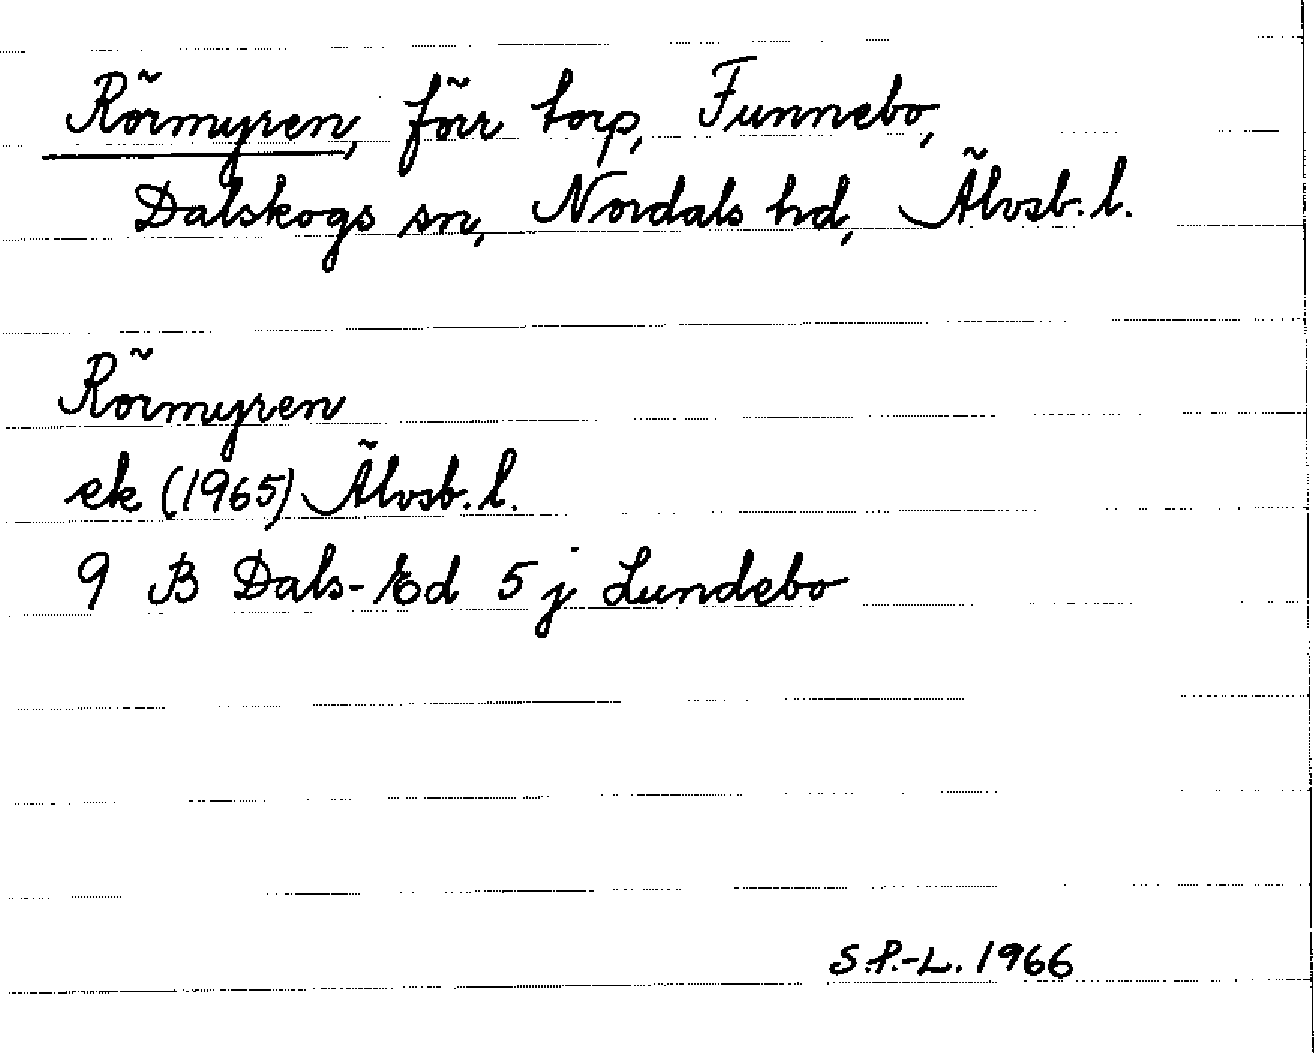 Rörmyren, förr torp, Funnebo,
Dalskogs sn, Nordals hd, Älvsb. l.
Rörmyren
ek (1965) Älvsb. l.
9 B Dals-Ed 5 j Lundebo
S.P.-L. 1966